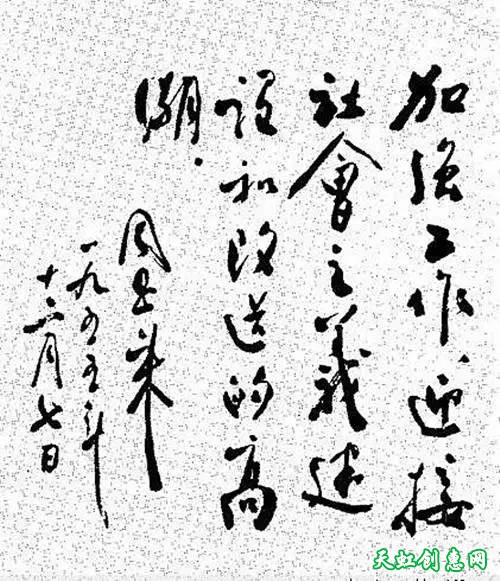 加强工作、迎接
社會主義建
設和改造的高
潮.
周恩来
一九五五年
十二月七日
天虹创意网